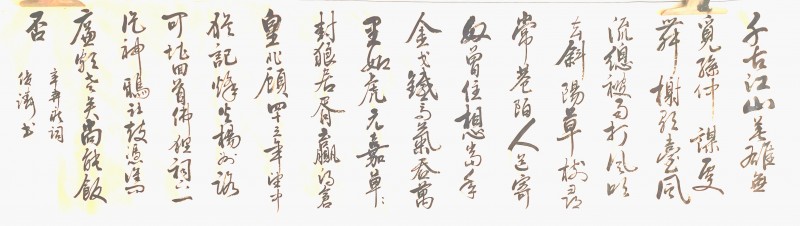 千古江山英雄無
覓孫仲謀處
舞榭歌臺風
流總被雨打風吹
去斜陽草樹尋
常巷陌人道寄
奴曾住想當年
金戈鐵馬氣吞萬
里如虎元嘉草〻
封狼居胥贏得倉
皇北顧四十三年望中
猶記烽火揚州路
可堪回首佛狸祠下一
片神鴉社鼓憑誰問
廉頗老矣尚能飯
否
辛弃疾詞
书